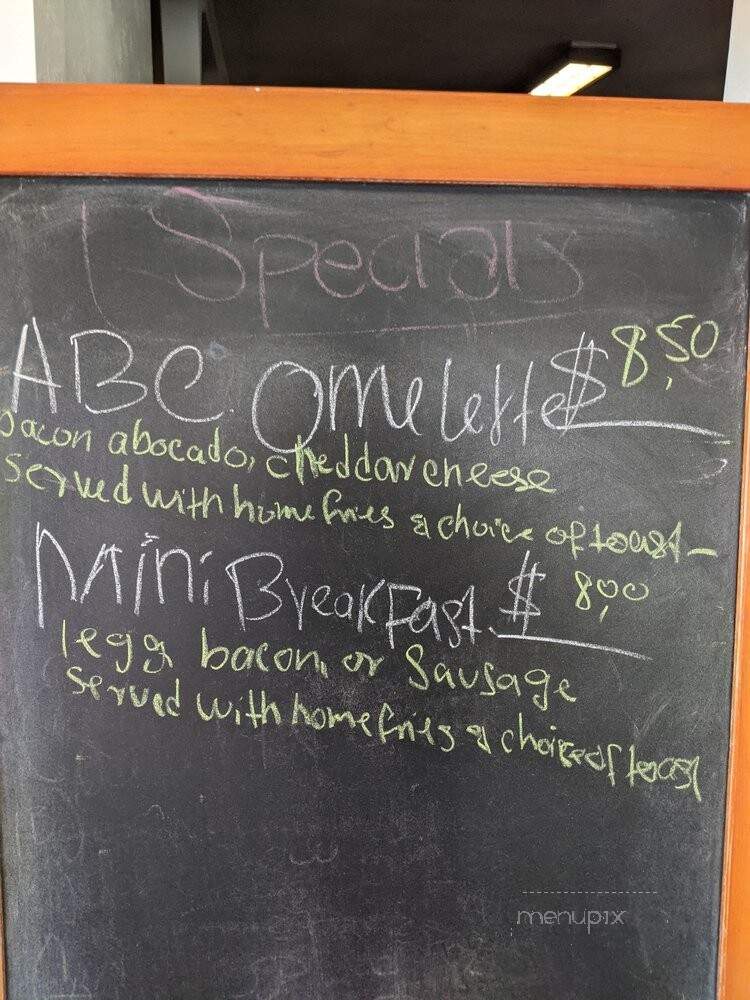 Specials
ABC Omelette $ 8,50
bacon abocado, cheddar cheese
served with home fries & choice of toast-
Mini BreakFast $ 8,00
1 egg bacon, or sausage
served with home fries & choice of toast
menupix